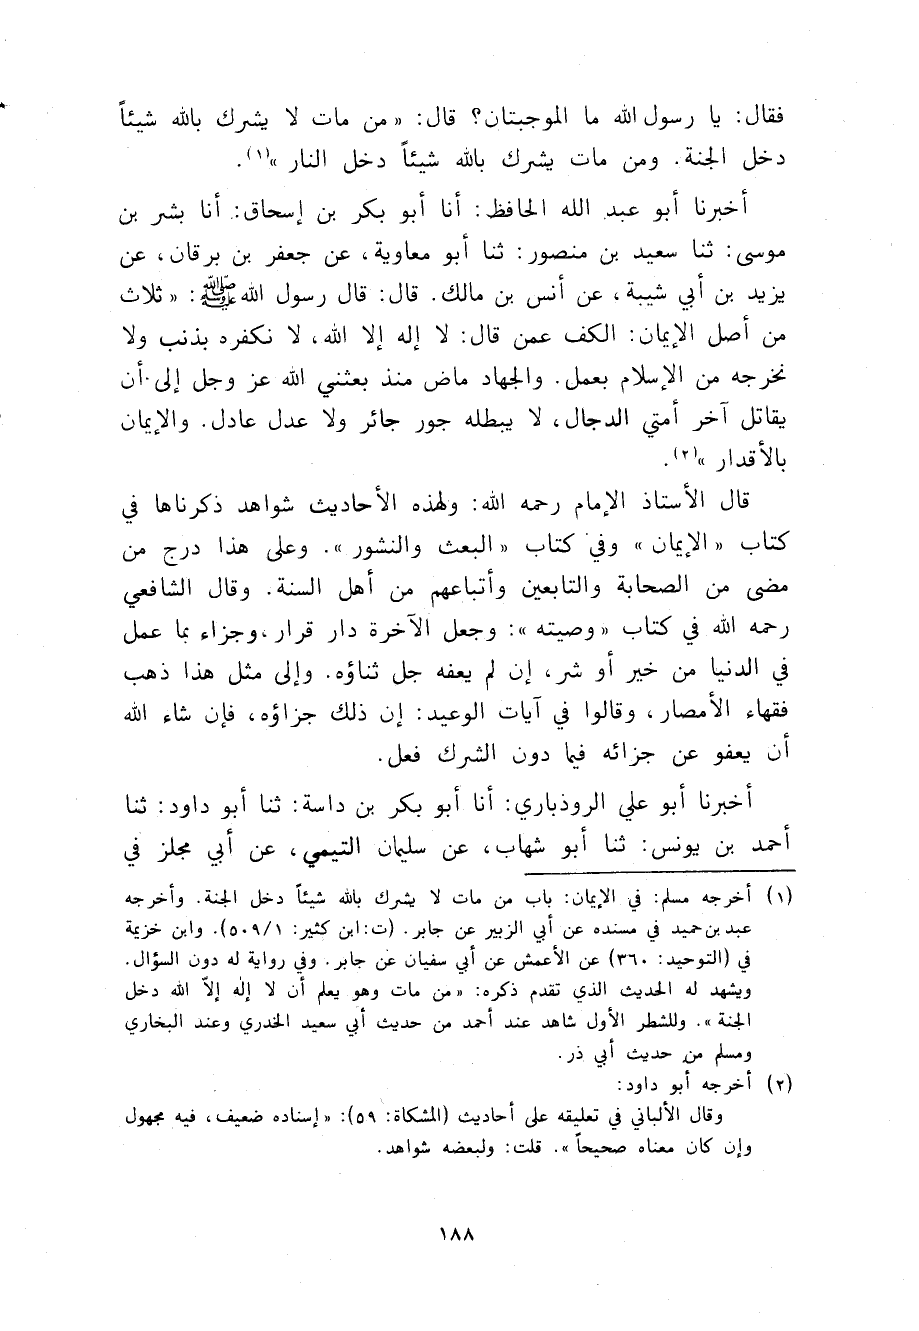 فقال: يا رسول الله ما الموجبتان؟ قال: «من مات لا يشرك بالله شيئاً
دخل الجنة. ومن مات يشرك بالله شيئاً دخل النار»(١).
أخبرنا أبو عبد الله الحافظ: أنا أبو بكر بن إسحاق: أنا بشر بن
موسى: ثنا سعيد بن منصور: ثنا أبو معاوية، عن جعفر بن برقان، عن
يزيد بن أبي شيبة، عن أنس بن مالك. قال: قال رسول الله ﷺ: «ثلاث
من أصل الإيمان: الكف عمن قال: لا إله إلا الله، لا نكفره بذنب ولا
نخرجه من الإسلام بعمل. والجهاد ماض منذ بعثني الله عز وجل إلى أن
يقاتل آخر أمتي الدجال، لا يبطله جور جائر ولا عدل عادل. والإيمان
بالأقدار»(٢).
قال الأستاذ الإمام رحمه الله: ولهذه الأحاديث شواهد ذكرناها في
كتاب «الإيمان» وفي كتاب «البعث والنشور». وعلى هذا درج من
مضى من الصحابة والتابعين وأتباعهم من أهل السنة. وقال الشافعي
رحمه الله في كتاب «وصيته»: وجعل الآخرة دار قرار، وجزاء بما عمل
في الدنيا من خير أو شر، إن لم يعفه جل ثناؤه. وإلى مثل هذا ذهب
فقهاء الأمصار، وقالوا في آيات الوعيد: إن ذلك جزاؤه، فإن شاء الله
أن يعفو عن جزائه فيما دون الشرك فعل.
أخبرنا أبو علي الروذباري: أنا أبو بكر بن داسة: ثنا أبو داود: ثنا
أحمد بن يونس: ثنا أبو شهاب، عن سليمان التيمي، عن أبي مجلز في
(١) أخرجه مسلم: في الإيمان: باب من مات لا يشرك بالله شيئاً دخل الجنة. وأخرجه
عبد بن حميد في مسنده عن أبي الزبير عن جابر. (ت: ابن كثير: ٥٠٩/١). وابن خزيمة
في (التوحيد: ٣٦٠) عن الأعمش عن أبي سفيان عن جابر. وفي رواية له دون السؤال.
ويشهد له الحديث الذي تقدم ذكره: «من مات وهو يعلم أن لا إله إلاّ الله دخل
الجنة». وللشطر الأول شاهد عند أحمد من حديث أبي سعيد الخدري وعند البخاري
ومسلم من حديث أبي ذر.
(٢) أخرجه أبو داود:
وقال الألباني في تعليقه على أحاديث (المشكاة: ٥٩): «إسناده ضعيف، فيه مجهول
وإن كان معناه صحيحاً». قلت: ولبعضه شواهد.
١٨٨